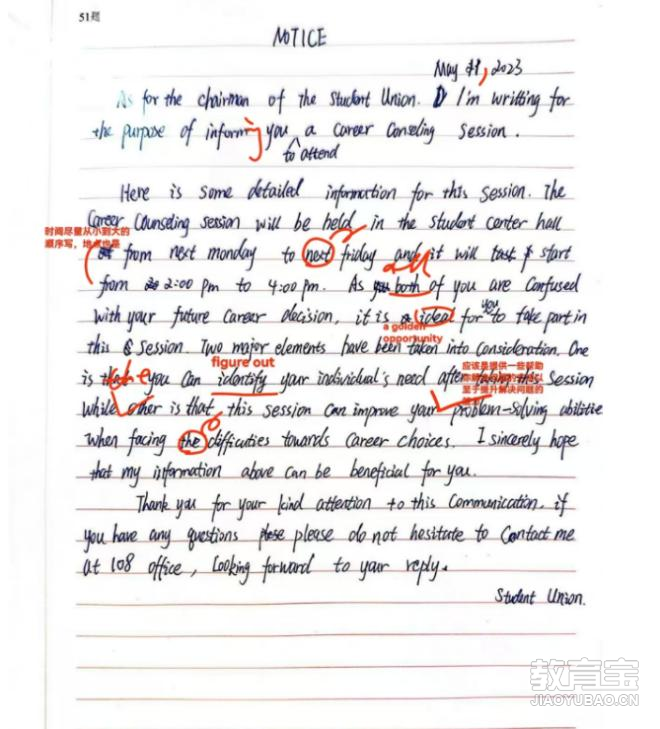 51题
NOTICE
May 31, 2023
As for the chairman of the Student Union. I'm writting for
the purpose of inform you a Career Conseling Session.
to attend
Here is some detailed information for this session. The
Career Counseling session will be held in the student center hall
时间尽量从小到大的
顺序写，地点也是
from next monday to next friday and it will start
all
from 2:00 pm to 4:00 pm. As both of you are confused
with your future career decision, it is ideal for you to take part in
a golden
opportunity
this session. Two major elements have been taken into consideration. One
figure out
应该是提供一些帮助
至于提升解决问题的
is the you can identify your individual's need after taking this session
while other is that this session can improve your problem-solving abilitie
when facing the difficuties towards career choices. I sincerely hope
that my information above can be beneficial for you.
Thank you for your kind attention to this communication, if
you have any questions please do not hesitate to contact me
at 108 office, looking forward to your reply.
Student Union.
教育宝
JIAOYUBAO.CN